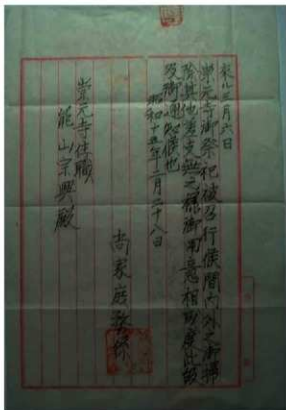 来ル三月六日
崇元寺御祭祀被召行候間内外之御掃
除其他差支無之様御用意相成度此段
及御通知候也
昭和十五年二月二十八日
尚家庭務係
崇元寺住職
瀧山宗興殿